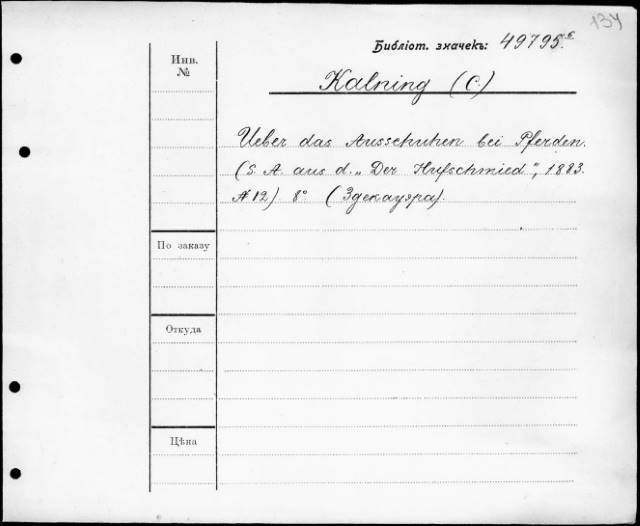 134
Библіот. значекъ: 49795 б
Инв.
№
Kalning (C.)
Ueber das Ausschuhen bei Pferden.
(S. A. aus d. „Der Hufschmied", 1883.
№ 12) 8° (Здекауэра).
По заказу
Откуда
Цѣна